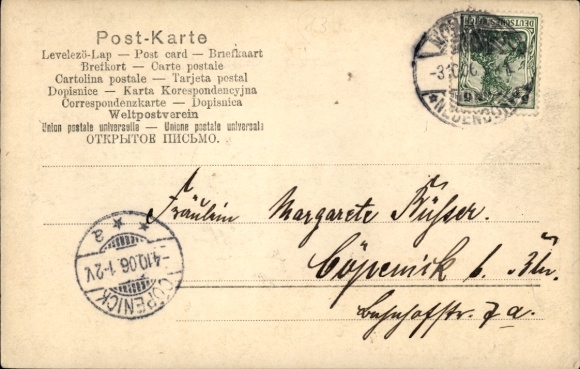 Post-Karte
Levelezö-Lap — Post card — Briefkaart
Brefkort — Carte postale
Cartolina postale — Tarjeta postal
Dopisnice — Karta Korespondencyjna
Correspondenzkarte — Dopisnica
Weltpostverein
Union postale universelle — Unione postale universale
ОТКРЫТОЕ ПИСЬМО.
DEUTSCHES
-3.10.06
Fräulein Margarete
Cöpenick b. Bln.
Bahnhofstr. 7a.
CÖPENICK
-4.10.06.1-2V.
a